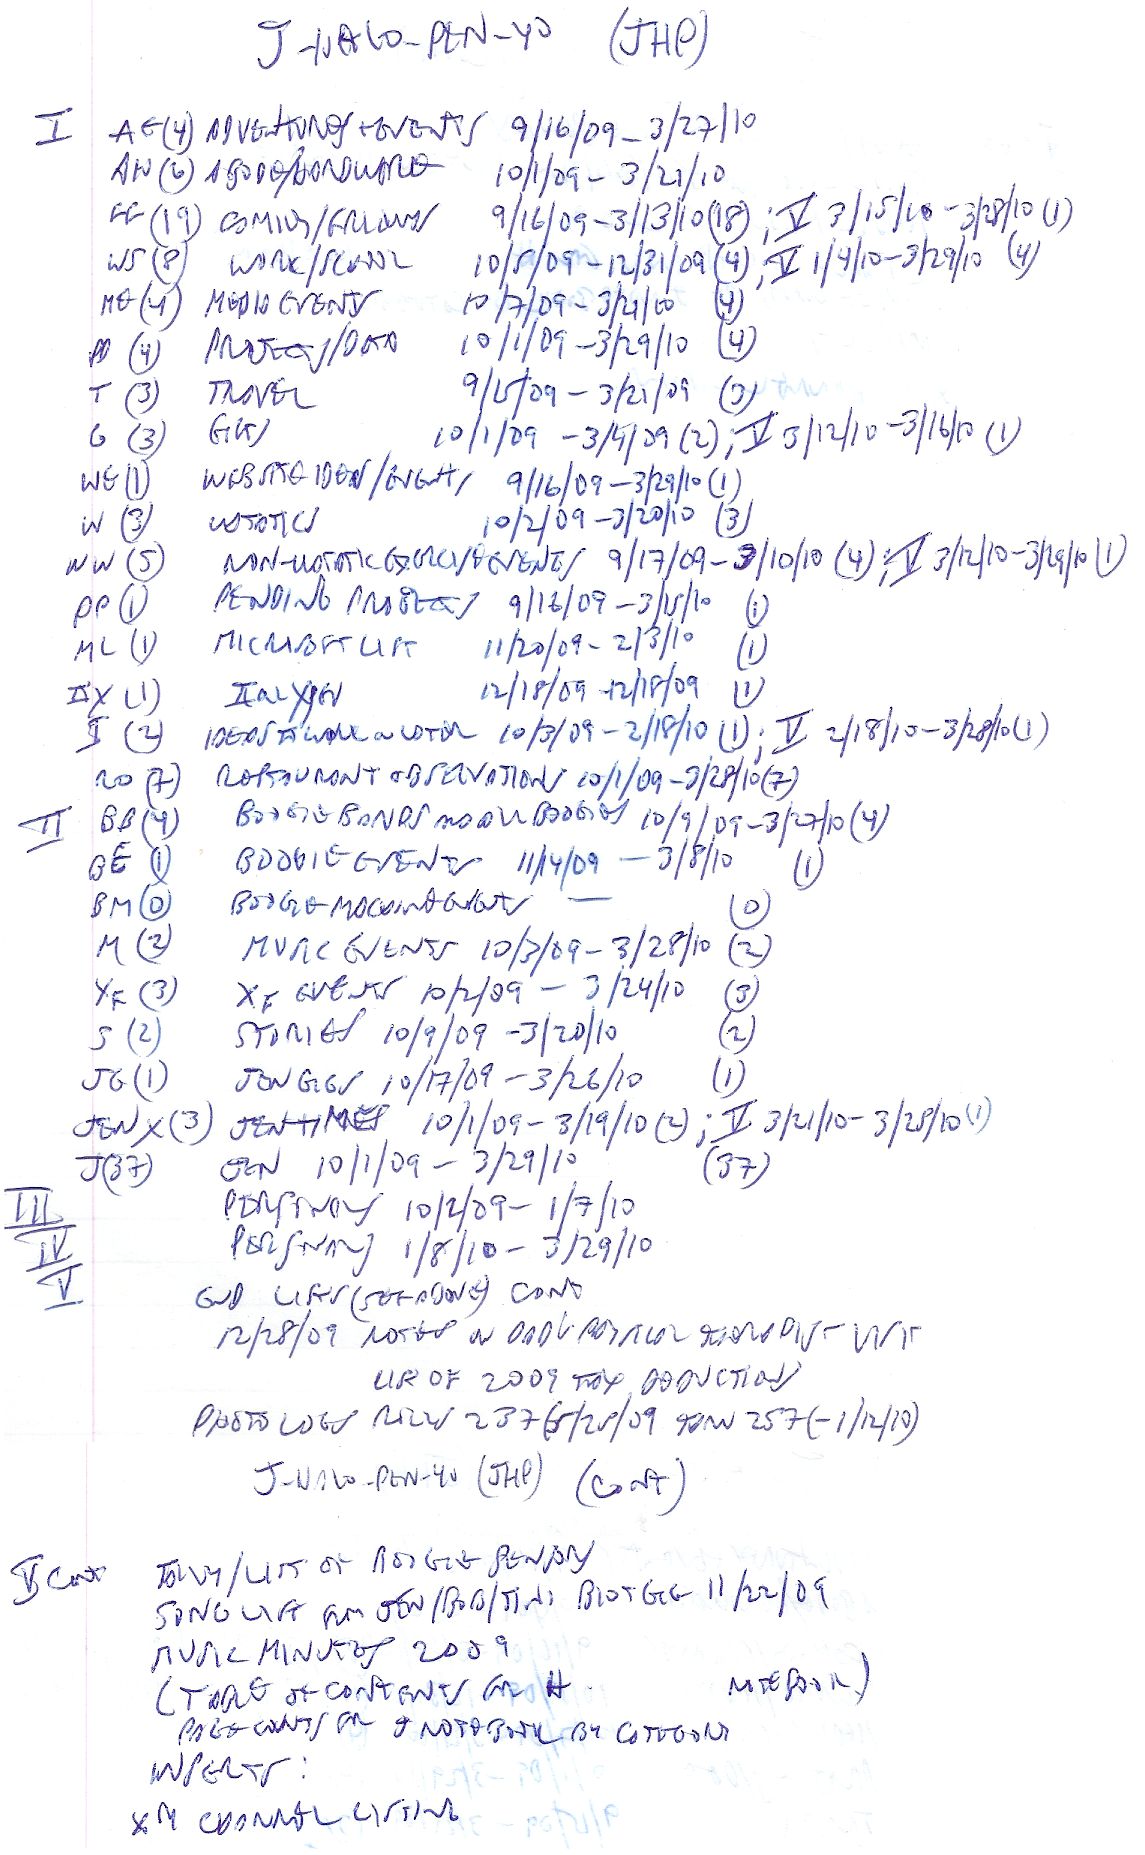 J-HALO-PEN-YO (JHP)
I AE(4) ADVENTURES+EVENTS 9/16/09-3/27/10
AH(6) ABODE/HARDWARE 10/1/09-3/21/10
(19) 9/16/09-3/13/10(18); V 3/15/10-3/28/10(1)
WS(8) WORK/SCHOOL 10/5/09-12/31/09(4); V 1/4/10-3/29/10 (4)
ME(4) MEDIA EVENTS 10/7/09-3/21/10 (4)
PD (4) PROJECTS/DATA 10/1/09-3/29/10 (4)
T (3) TRAVEL 9/15/09-3/21/09 (3)
G (3) GIGS 10/1/09-3/4/09(2); V 3/12/10-3/16/10 (1)
WE(1) WEBSITE IDEAS/EVENTS 9/16/09-3/29/10(1)
W (3) 10/2/09-3/20/10 (3)
NW(5) NON- EVENTS 9/17/09-3/10/10 (4); V 3/12/10-3/29/10(1)
PP(1) PENDING PROJECTS 9/16/09-3/15/10 (1)
ML(1) MICROSOFT LIFT 11/20/09-2/3/10 (1)
IIX(1) 12/18/09-12/18/09 (1)
I (2) IDEAS 10/3/09-2/18/10 (1); V 2/18/10-3/28/10(1)
RO(7) RESTAURANT OBSERVATIONS 10/1/09-3/28/10(7)
II BB(4) BOOGIE BANDS BOOGIES 10/9/09-3/27/10(4)
BE(1) BOOGIE EVENTS 11/14/09-3/8/10 (1)
BM(0) BOOGIE MACHINE EVENTS — (0)
M(2) MUSIC EVENTS 10/3/09-3/28/10 (2)
XF(3) XF EVENTS 10/2/09-3/24/10 (3)
S(2) STORIES 10/9/09-3/20/10 (2)
JG(1) JEN GIGS 10/17/09-3/26/10 (1)
JENX(3) JEN TIMES 10/1/09-3/19/10(2); V 3/21/10-3/28/10(1)
J(37) JEN 10/1/09-3/29/10 (37)
III PERSONALS 10/2/09-1/7/10
IV PERSONALS 1/8/10-3/29/10
V END LISTS (SEE ABOVE) CONT
12/28/09 NOTES ON VISIT
LIST OF 2009 TAX DEDUCTIONS
PHOTO LOGS ROLLS 237(5/25/09 THRU 257(-1/12/10)
J-HALO-PEN-YO (JHP) (CONT)
V CONT TALLY/LIST OF BOOGIE
SONG LIST FROM JEN/BOB/TINA 11/22/09
MUSIC MINUTES 2009
(TABLE OF CONTENTS FOR H NOTEBOOK)
PAGE COUNTS FOR NOTEBOOK BY CATEGORY
INSERTS:
XM CHANNEL LISTING